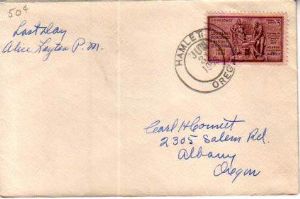 50¢
Last day
Alice Layton P.M.
HAMLET
OREG
Earl H Comitt
2305 Salem Rd.
Albany
Oregon